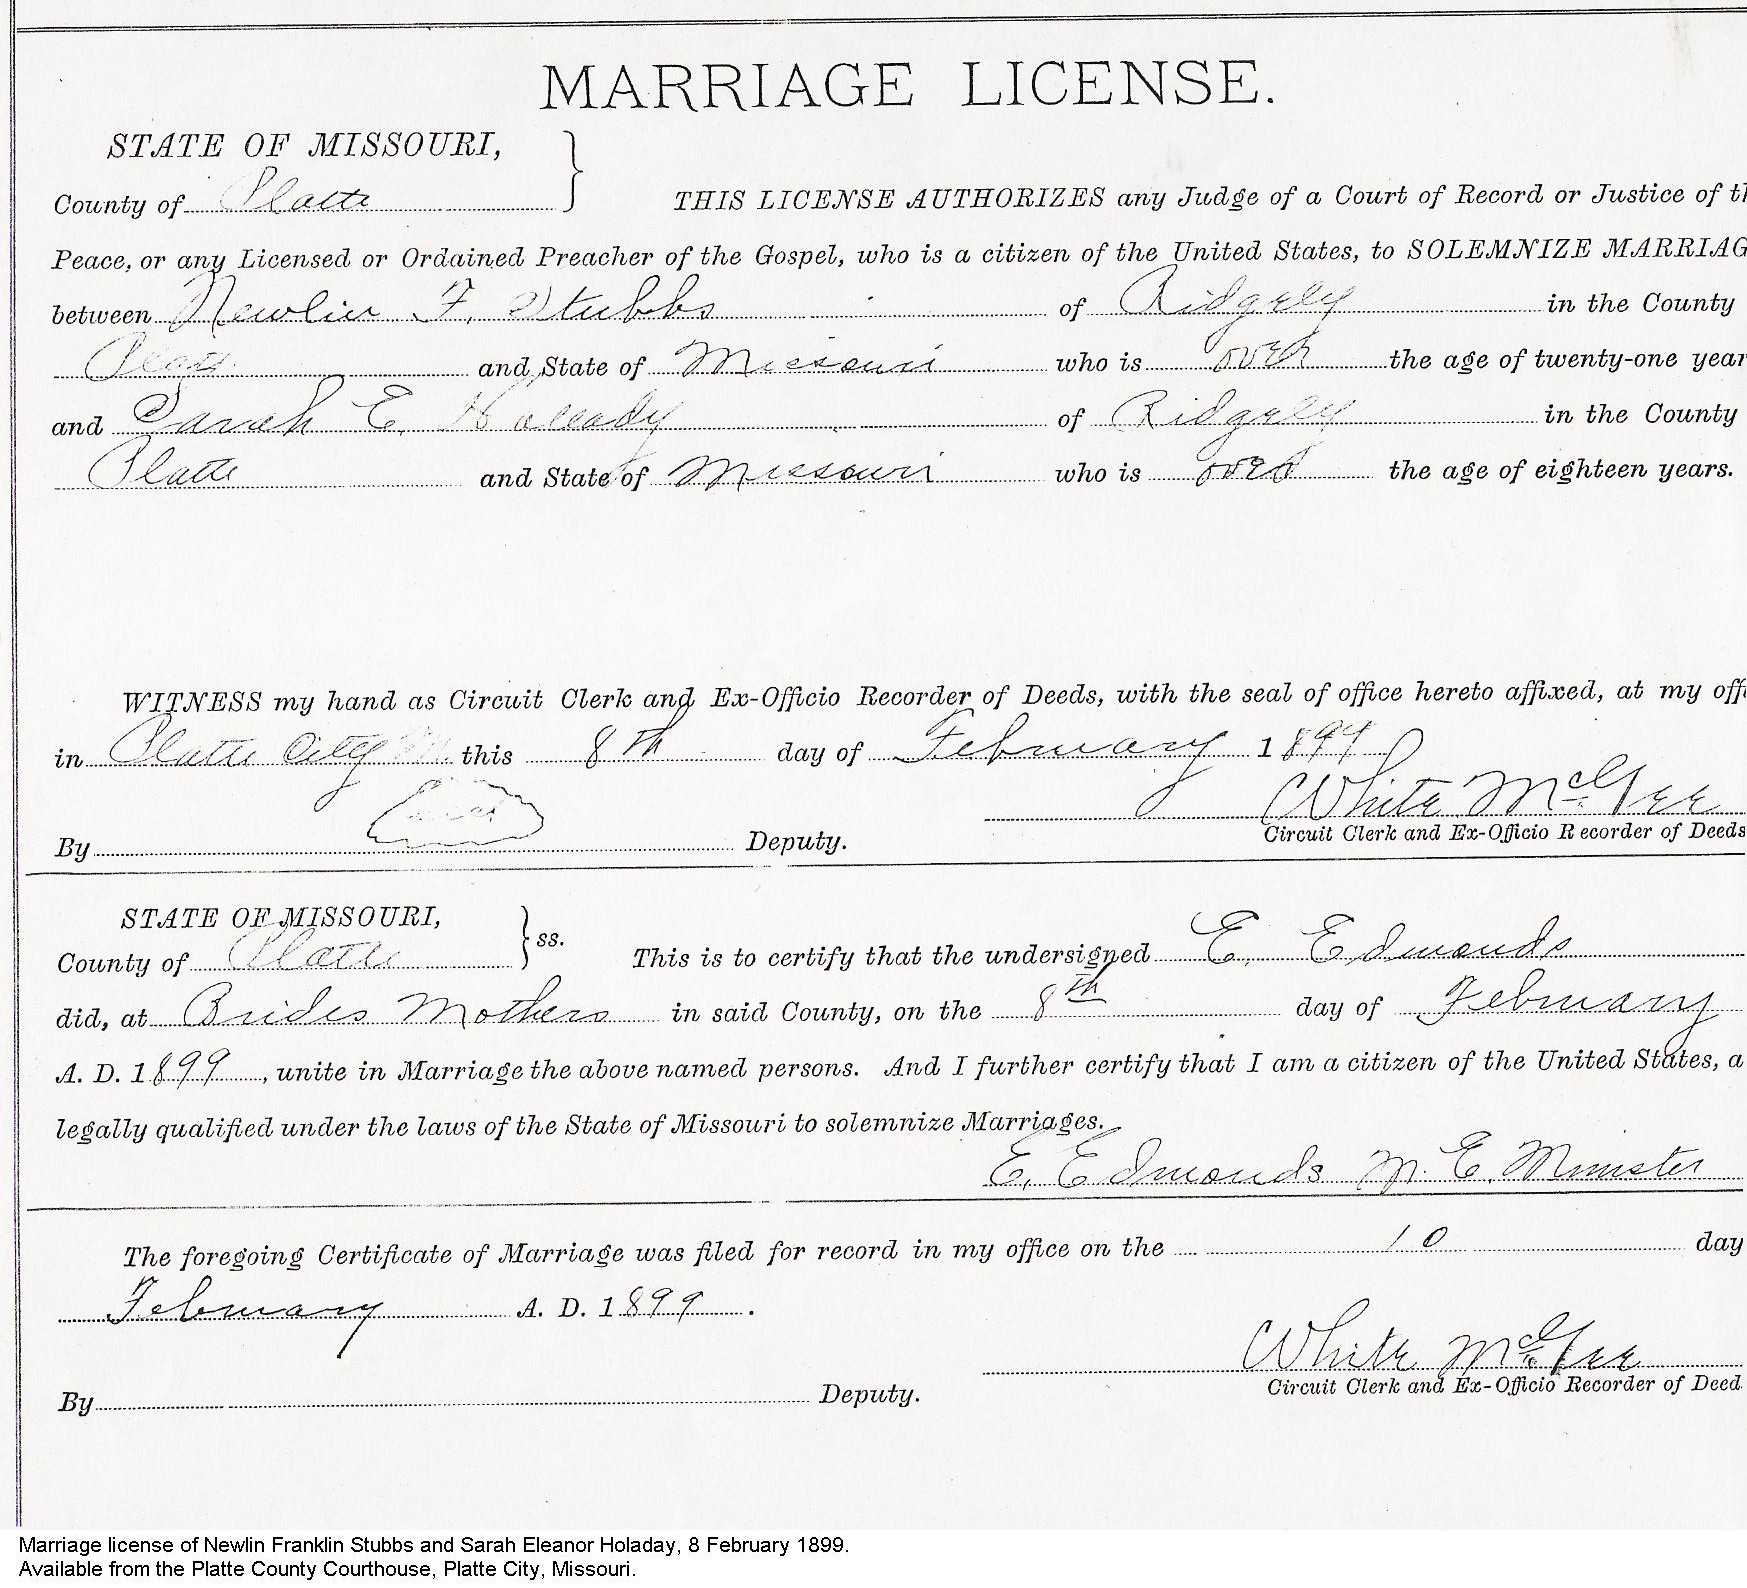 MARRIAGE LICENSE.
STATE OF MISSOURI,
County of Platte } THIS LICENSE AUTHORIZES any Judge of a Court of Record or Justice of th
Peace, or any Licensed or Ordained Preacher of the Gospel, who is a citizen of the United States, to SOLEMNIZE MARRIAG
between Newlin F. Stubbs of Ridgely in the County
Platte and State of Missouri who is over the age of twenty-one year
and Sarah E. Holeady of Ridgely in the County
Platte and State of Missouri who is over the age of eighteen years.
WITNESS my hand as Circuit Clerk and Ex-Officio Recorder of Deeds, with the seal of office hereto affixed, at my offi
in Platte City M. this 8th day of February 1899
White McGee
By Deputy. Circuit Clerk and Ex-Officio Recorder of Deeds
STATE OF MISSOURI,
County of Platte } ss. This is to certify that the undersigned E. Edmonds
did, at Brides Mothers in said County, on the 8th day of February
A. D. 1899, unite in Marriage the above named persons. And I further certify that I am a citizen of the United States, a
legally qualified under the laws of the State of Missouri to solemnize Marriages.
E. Edmonds M. E. Minister
The foregoing Certificate of Marriage was filed for record in my office on the 10 day
February A. D. 1899.
White McGee
By Deputy. Circuit Clerk and Ex-Officio Recorder of Deed
Marriage license of Newlin Franklin Stubbs and Sarah Eleanor Holaday, 8 February 1899.
Available from the Platte County Courthouse, Platte City, Missouri.